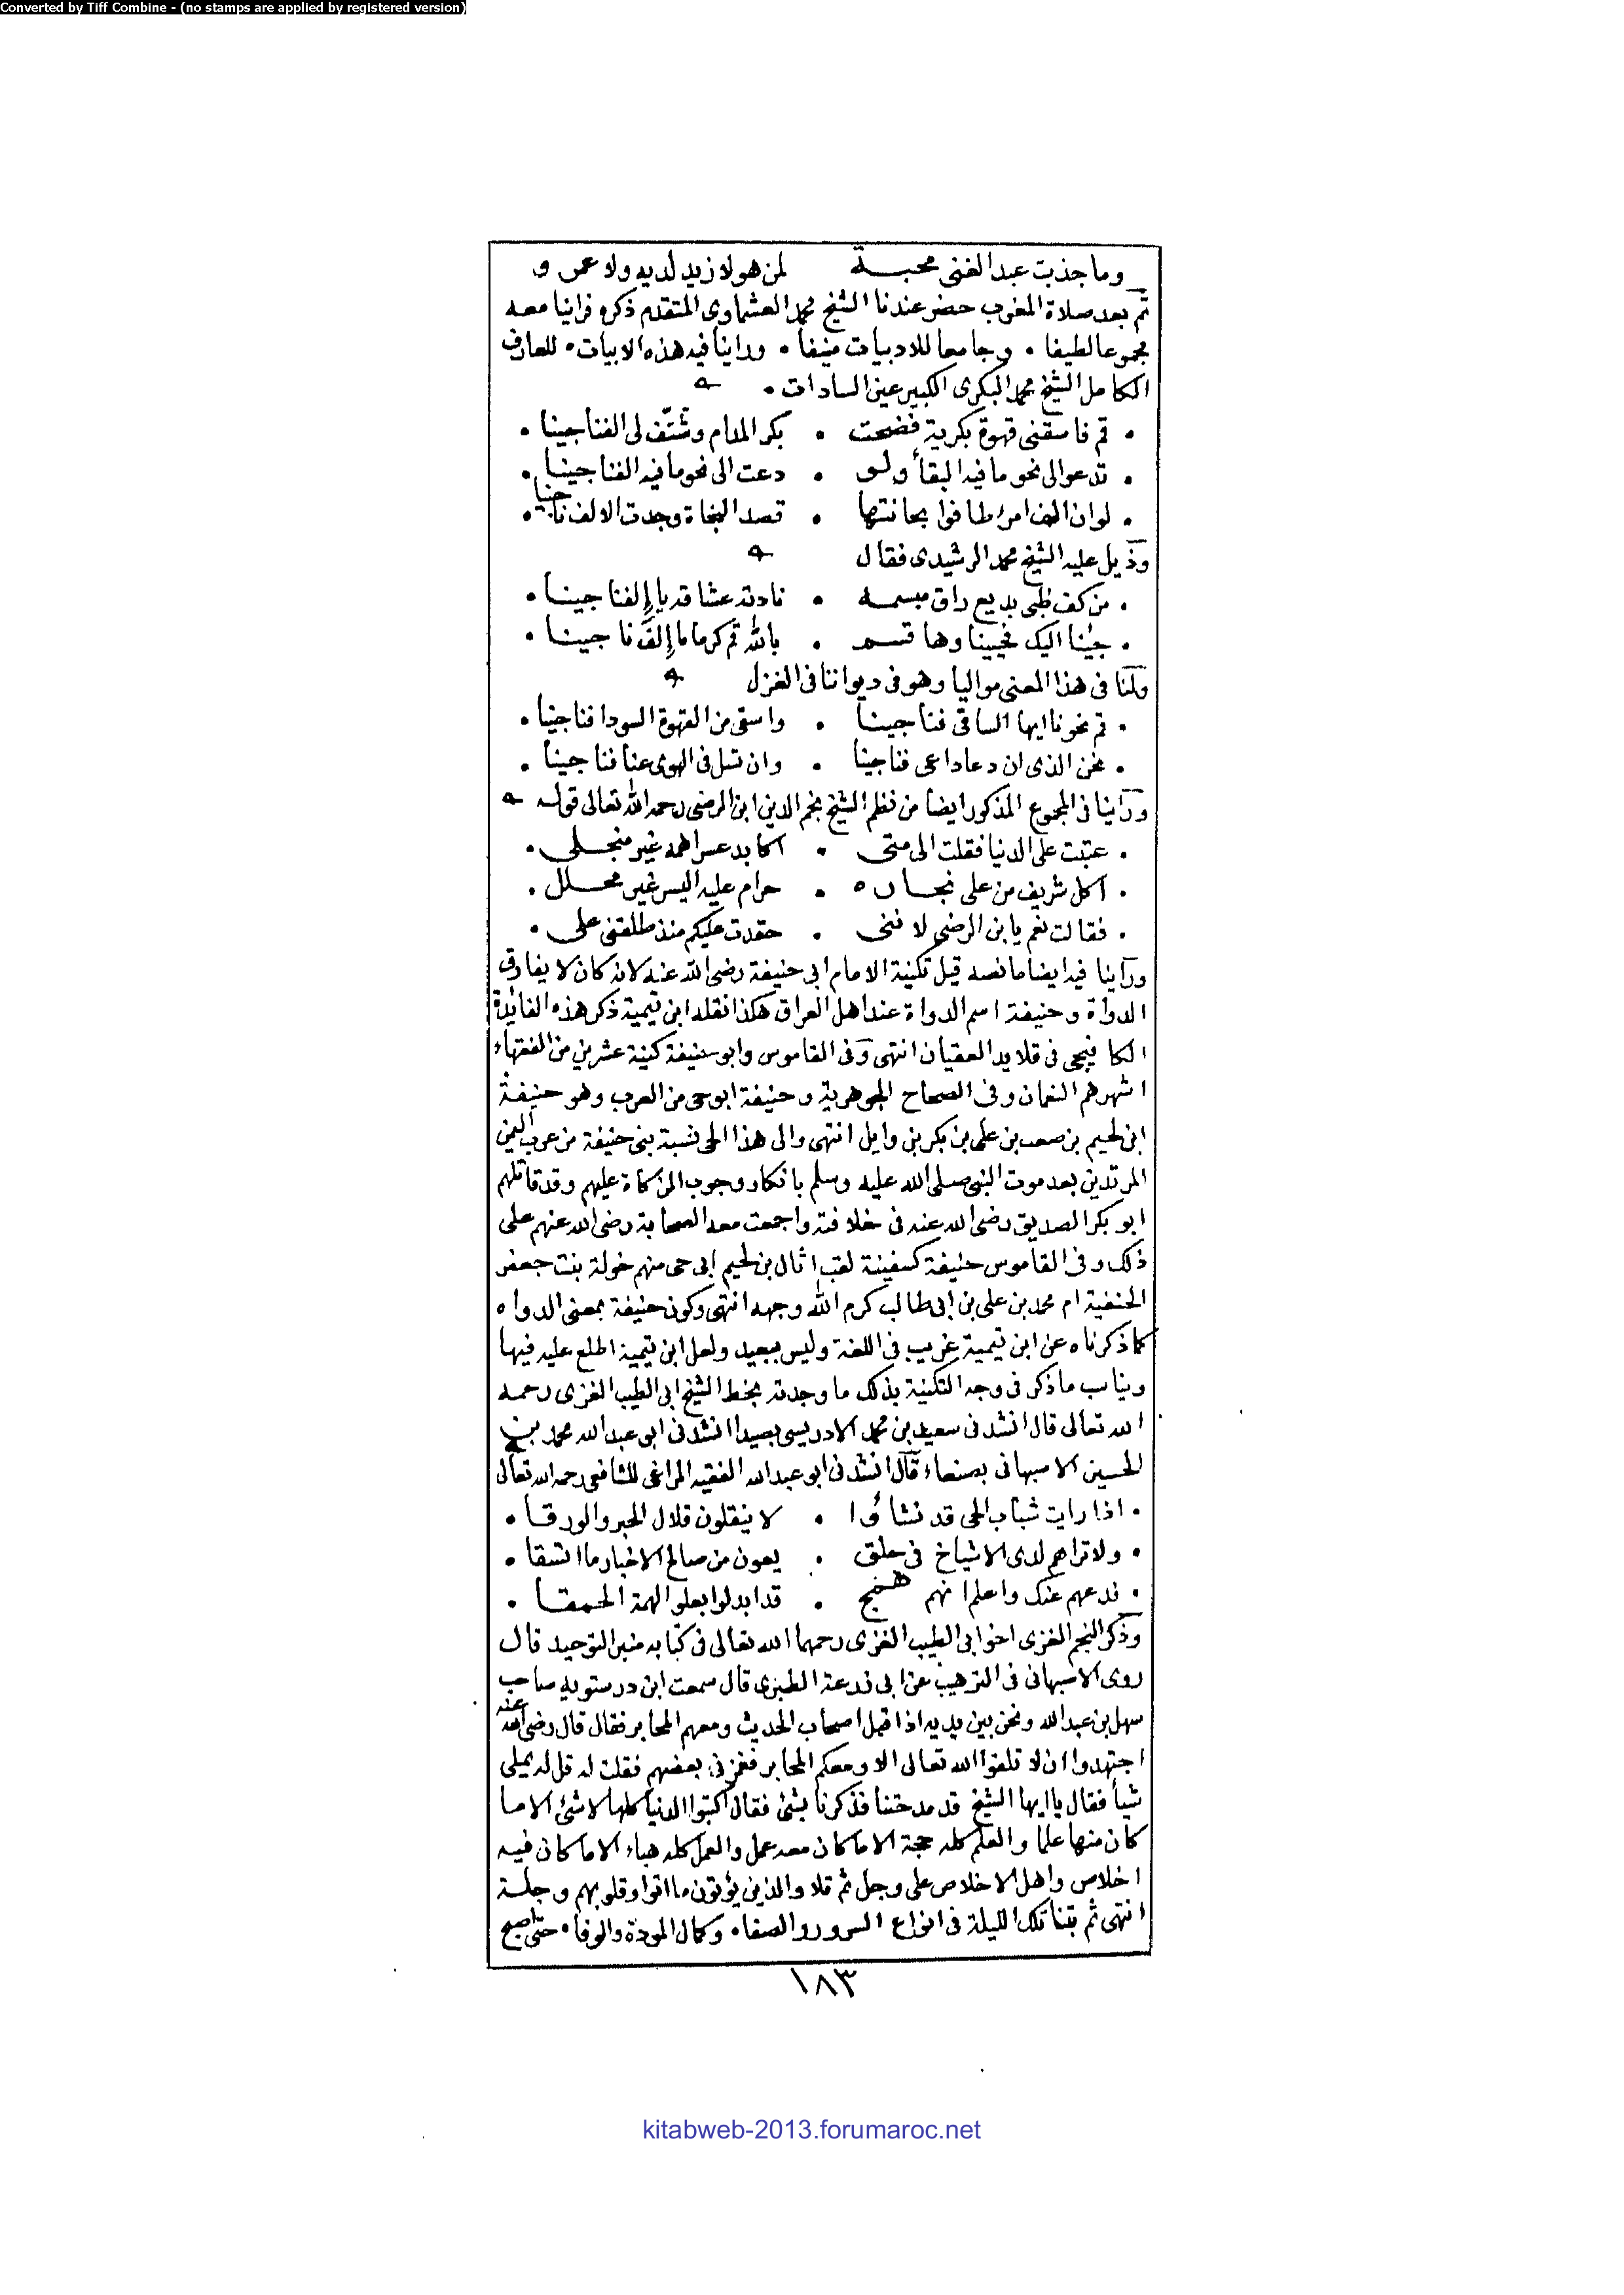 Converted by Tiff Combine - (no stamps are applied by registered version)
وما جذبت عبد الغنى محبـــة لمن هو لا زيد لديه ولا عمرو
ثم بعد صلاة المغرب حضر عندنا الشيخ محمد العشماوى المتقدم ذكره فراينا معه
مجموعا لطيفا • وجامعا للادبيات منيفا • وراينا فيه هذه الابيات • للعارف
الكامل الشيخ محمد البكرى الكبير عين السادات •
• قم فاسقنى قهوة بكرية فضحت • بكر المدام وشنّف لى الفناجينا •
• تدعو الى نحو ما فيه البقأ ولو • دعت الى نحو ما فيه الفنا جينا •
• لو ان الف امرئ طافوا بحانتها • قصد النجاة وجدت الالف ناجينا •
وذيل عليه الشيخ محمد الرشيدى فقال
• من كف ظبى بديع راق مبسمه • نادته عشاقه يا إلفنا جينا •
• جينا اليك فحيينا وها قسم • بالله قم كرما ما إلفَنا جينا •
ولنا فى هذا المعنى مواليا وهو فى ديواننا فى الغزل
• قم نحونا ايها الساقى فناجينا • واسقى من القهوة السودا فناجينا •
• نحن الذى ان دعا داعى فناجينا • وان تسل فى الهوى عنا فناجينا •
وراينا فى المجموع المذكور ايضا من نظم الشيخ نجم الدين ابن الرضى رحمه الله تعالى قوله
• عتبت على الدنيا فقلت الى متى • اكابد عسرا همه غير منجلى •
• اكل شريف من على نجاره • حرام عليه اليسر غير محلل •
• فقالت نعم يا ابن الرضى لاننى • حقدت عليكم منذ طلقنى على •
وراينا فيه ايضا ما نصه قيل تكنية الامام ابى حنيفة رضى الله عنه لانه كان لا يفارق
الدواة وحنيفة اسم الدواة عند اهل العراق هكذا نقله ابن تيمية ذكر هذه الفائدة
الكافيجى فى قلايد العقيان انتهى وفى القاموس وابو حنيفة كنية عشرين من الفقهاء
اشهرهم النعمان وفى الصحاح الجوهرية وحنيفة ابو حى من العرب وهو حنيفة
ابن لجيم بن صعب بن على بن بكر بن وايل انتهى والى هذا الحى نسبة بنى حنيفة من عرب اليمن
المرتدين بعد موت النبى صلى الله عليه وسلم بانكار وجوب الزكاة عليهم وقد قاتلهم
ابو بكر الصديق رضى الله عنه فى خلافته واجمعت معه الصحابة رضى الله عنهم على
ذلك وفى القاموس حنيفة كسفينة لقب اثال بن لجيم ابى حى منهم خولة بنت جعفر
الحنفية ام محمد بن على بن ابى طالب كرم الله وجهه انتهى وكون حنيفة بمعنى الدواه
كما ذكرناه عن ابن تيمية غريب فى اللغة وليس ببعيد ولعل ابن تيمية اطلع عليه فيها
ويناسب ما ذكر فى وجه التكنية بذلك ما وجدته بخط الشيخ ابى الطيب الغزى رحمه
الله تعالى قال انشدنى سعيد بن محمد الادريسى بصيدا انشدنى ابو عبد الله محمد بن
الحسين الاصبهانى بصنعاء قال انشدنى ابو عبد الله الفقيه المراغى للشافعى رحمه الله تعالى
• اذا رايت شباب الحى قد نشأوا • لا ينقلون قلال الحبر والورقا •
• ولا تراهم لدى الاشياخ فى حلق • يعون من صالح الاخبار ما اتسقا •
• فدعهم عنك واعلم انهم همج • قد ابدلوا بعلو الهمة الحمقا •
وذكر النجم الغزى اخو ابى الطيب الغزى رحمهما الله تعالى فى كتابه منبر التوحيد قال
روى الاصبهانى فى الترهيب عن ابى زرعة الطبرى قال سمعت ابن درستويه صاحب
سهل بن عبد الله ونحن بين يديه اذ اقبل اصحاب الحديث ومعهم المحابر فقال قال رضى الله عنه
اجتهدوا ان لا تلقوا الله تعالى الا ومعكم المحابر فغمزنى بعضهم فقلت له قل له يملى
شيأ فقال يا ايها الشيخ قد مدحتنا فذكرنا بشئ فقال اكتبوا الدنيا كلها لا شئ الا ما
كان منها علما والعلم كله حجة الا ما كان معه عمل والعمل كله هباء الا ما كان فيه
اخلاص واهل الاخلاص على وجل ثم تلا والذين يؤتون ما اتوا وقلوبهم وجلة
انتهى ثم بتنا تلك الليلة فى انواع السرور والصفا • وكمال المودة والوفا • حتى اصبح
١٨٣
kitabweb-2013.forumaroc.net